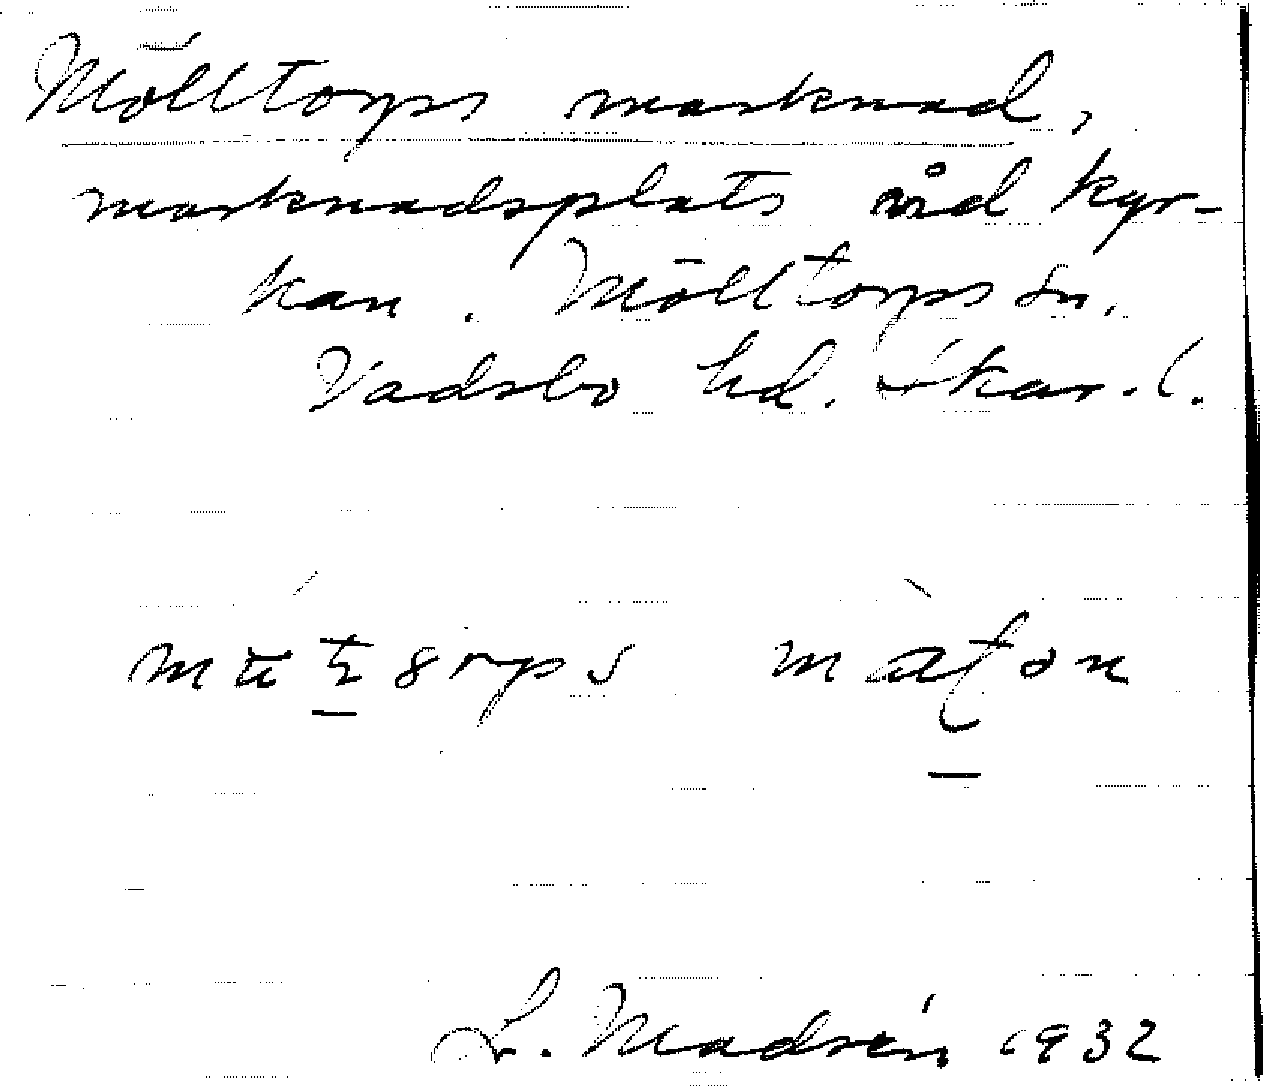 Mölltorps marknad,
marknadsplats vid kyr-
kan. Mölltorps sn.
Vadsbo hd. Skar. l.
L. Madsén 1932